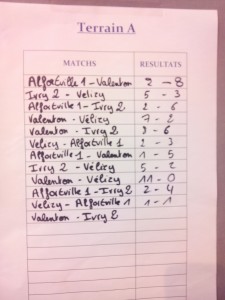 Terrain A
MATCHS RESULTATS
Alfortville 1 - Valenton 2 - 8
Ivry 2 - Vélizy 5 - 3
Alfortville 1 - Ivry 2 2 - 6
Valenton - Vélizy 7 - 2
Valenton - Ivry 2 - 6
Vélizy - Alfortville 1 2 - 3
Alfortville 1 - Valenton 1 - 5
Ivry 2 - Vélizy 5 - 2
Valenton - Vélizy 11 - 0
Alfortville 1 - Ivry 2 2 - 4
Vélizy - Alfortville 1 1 - 1
Valenton - Ivry 2